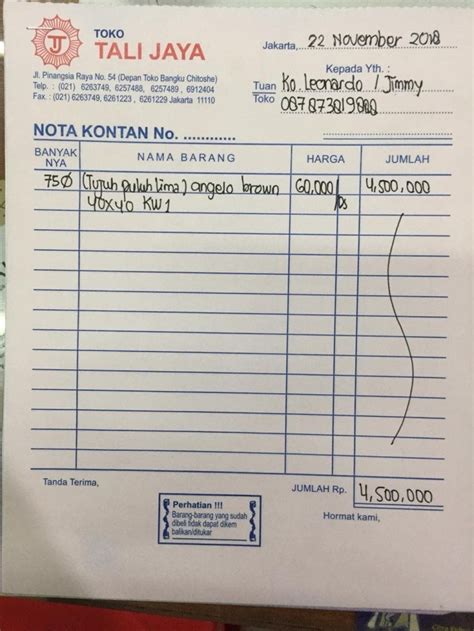 TJ
TOKO
TALI JAYA
Jl. Pinangsia Raya No. 54 (Depan Toko Bangku Chitoshe)
Telp. : (021) 6263749, 6257488, 6257489, 6912404
Fax. : (021) 6263749, 6261223 , 6261229 Jakarta 11110
Jakarta, 22 November 2018
Kepada Yth. :
Tuan Ko. Leonardo / Jimmy
Toko
NOTA KONTAN No. ............
BANYAK NYA NAMA BARANG HARGA JUMLAH
(Tujuh puluh lima) angelo brown 60,000 4,500,000
40x40 KW1
Tanda Terima,
JUMLAH Rp. 4,500,000
Hormat kami,
Perhatian !!!
Barang-barang yang sudah
dibeli tidak dapat dikem
balikan/ditukar